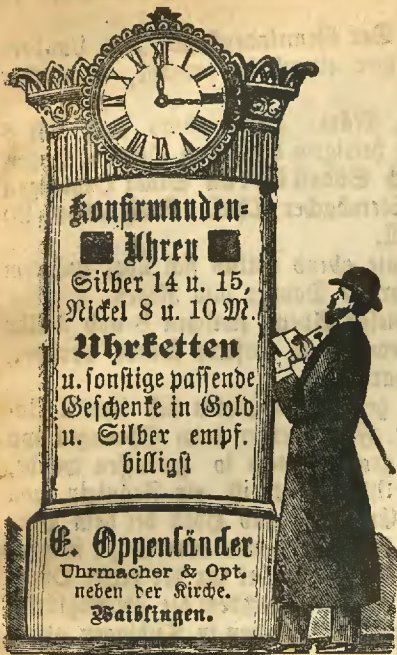 Konfirmanden-
Uhren
Silber 14 u. 15,
Nickel 8 u. 10 M.
Uhrketten
u. sonstige passende
Geschenke in Gold
u. Silber empf.
billigst
E. Oppenländer
Uhrmacher & Opt.
neben der Kirche.
Waiblingen.